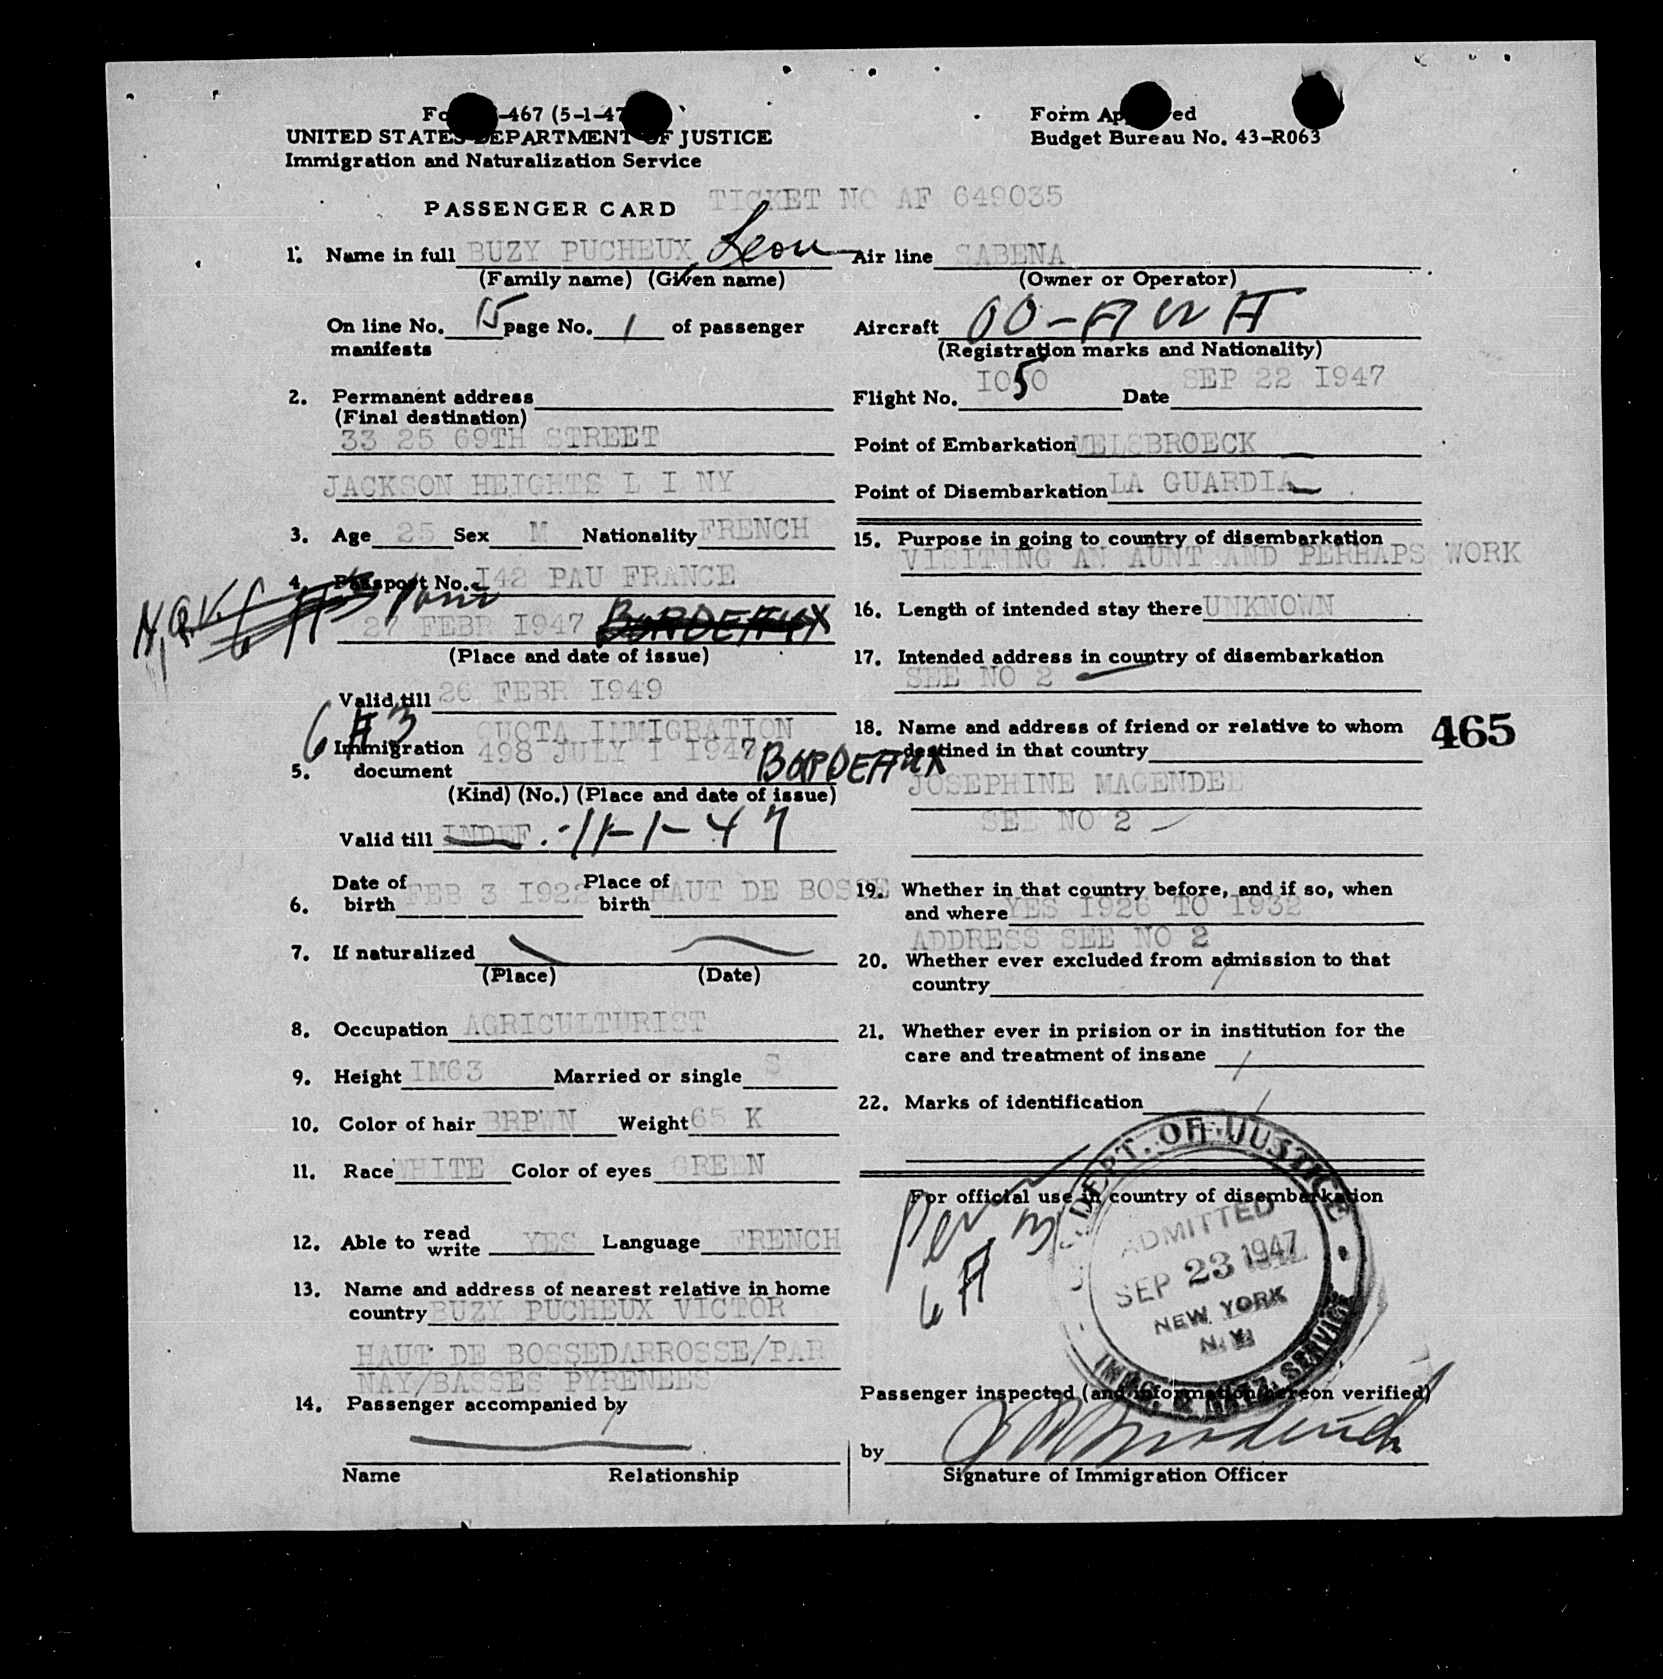 -467 (5-1-47
UNITED STATES DEPARTMENT OF JUSTICE
Immigration and Naturalization Service
Form Approved
Budget Bureau No. 43-R063
PASSENGER CARD TICKET NO AF 649035
1. Name in full BUZY PUCHEUX Leon
(Family name) (Given name)
On line No. 15 page No. 1 of passenger
manifests
2. Permanent address
(Final destination)
33 25 69TH STREET
JACKSON HEIGHTS L I NY
3. Age 25 Sex M Nationality FRENCH
4. Passport No. I42 PAU FRANCE
N.Q.V.
27 FEBR I947 BORDEAUX
(Place and date of issue)
Valid till 26 FEBR I949
6 A 3
QUOTA IMMIGRATION
5. Immigration document 498 JULY I I947 BORDEAUX
(Kind) (No.) (Place and date of issue)
Valid till INDEF. -11-1-47
6. Date of birth FEB 3 I922 Place of birth HAUT DE BOSSE
7. If naturalized
(Place) (Date)
8. Occupation AGRICULTURIST
9. Height IM63 Married or single S
10. Color of hair BRPWN Weight 65 K
11. Race WHITE Color of eyes GREEN
12. Able to read write YES Language FRENCH
13. Name and address of nearest relative in home
country BUZY PUCHEUX VICTOR
HAUT DE BOSSEDARROSSE/PAR
NAY/BASSES PYRENEES
14. Passenger accompanied by
Name Relationship
Air line SABENA
(Owner or Operator)
Aircraft OO-AWA
(Registration marks and Nationality)
Flight No. I050 Date SEP 22 I947
Point of Embarkation MELSBROECK
Point of Disembarkation LA GUARDIA
15. Purpose in going to country of disembarkation
VISITING AN AUNT AND PERHAPS WORK
16. Length of intended stay there UNKNOWN
17. Intended address in country of disembarkation
SEE NO 2
18. Name and address of friend or relative to whom
destined in that country
465
JOSEPHINE MAGENDEE
SEE NO 2
19. Whether in that country before, and if so, when
and where YES I926 TO I932
ADDRESS SEE NO 2
20. Whether ever excluded from admission to that
country
21. Whether ever in prision or in institution for the
care and treatment of insane
22. Marks of identification
For official use in country of disembarkation
Perm
6 A 3
DEPT. OF JUSTICE
ADMITTED
SEP 23 1947
NEW YORK
N.Y.
IMMIG. & NATZ. SERVICE
Passenger inspected (and information hereon verified)
by
Signature of Immigration Officer